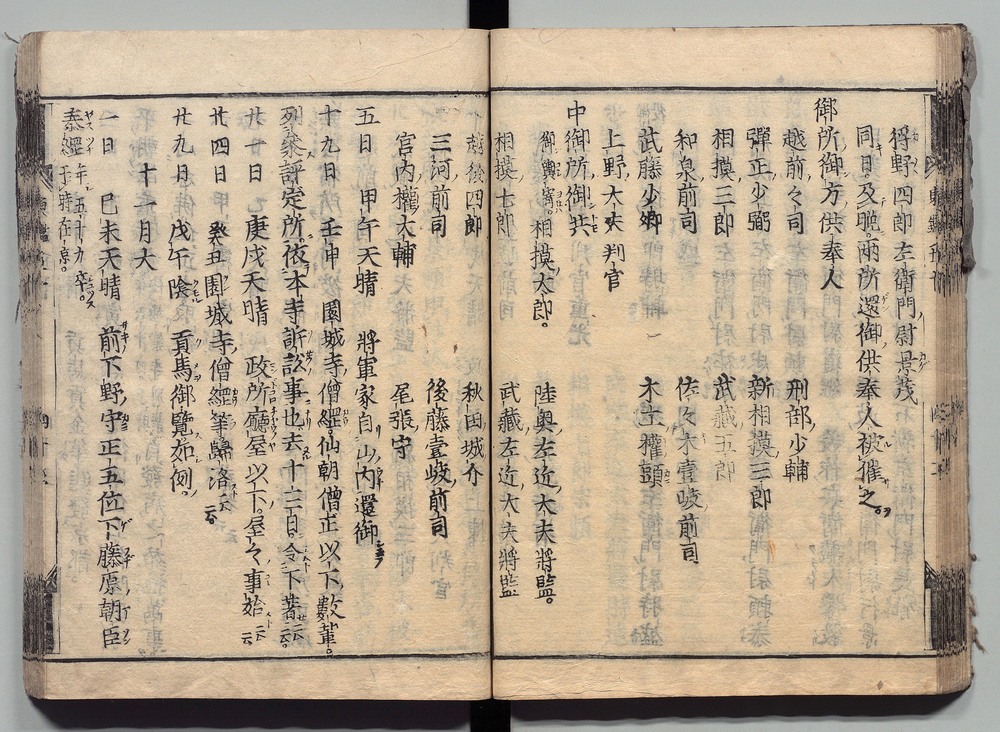 将野四郎左衛門尉景茂
同日及晩両所還御供奉人被催之
御所御方供奉人
越前々司　刑部少輔
彈正少弼　新相摸三郎
相摸三郎　武藏五郎
和泉前司　佐々木壹岐前司
武藤少卿　木工權頭
上野大夫判官
中御所御共
御輿寄相摸太郎。　陸奥左近大夫將監。
相摸七郎　武藏左近大夫將監
越後四郎　秋田城介
三河前司　後藤壹岐前司
宮内權大輔　尾張守
五日　甲午天晴　將軍家自山内還御
十九日　壬申　園城寺僧經仙朝僧正以下數輩。
列參評定所依本寺訴訟事也去十二日令下著云云。
廿日　庚戌天晴　政所廳屋以下。屋々事始云云
廿四日　癸丑園城寺僧經筆歸洛云云
廿九日　戊午陰　貢馬御覽如例。
十一月大
一日　己未天晴　前下野守正五位下藤原朝臣
泰經年五十九卒。于時在京。